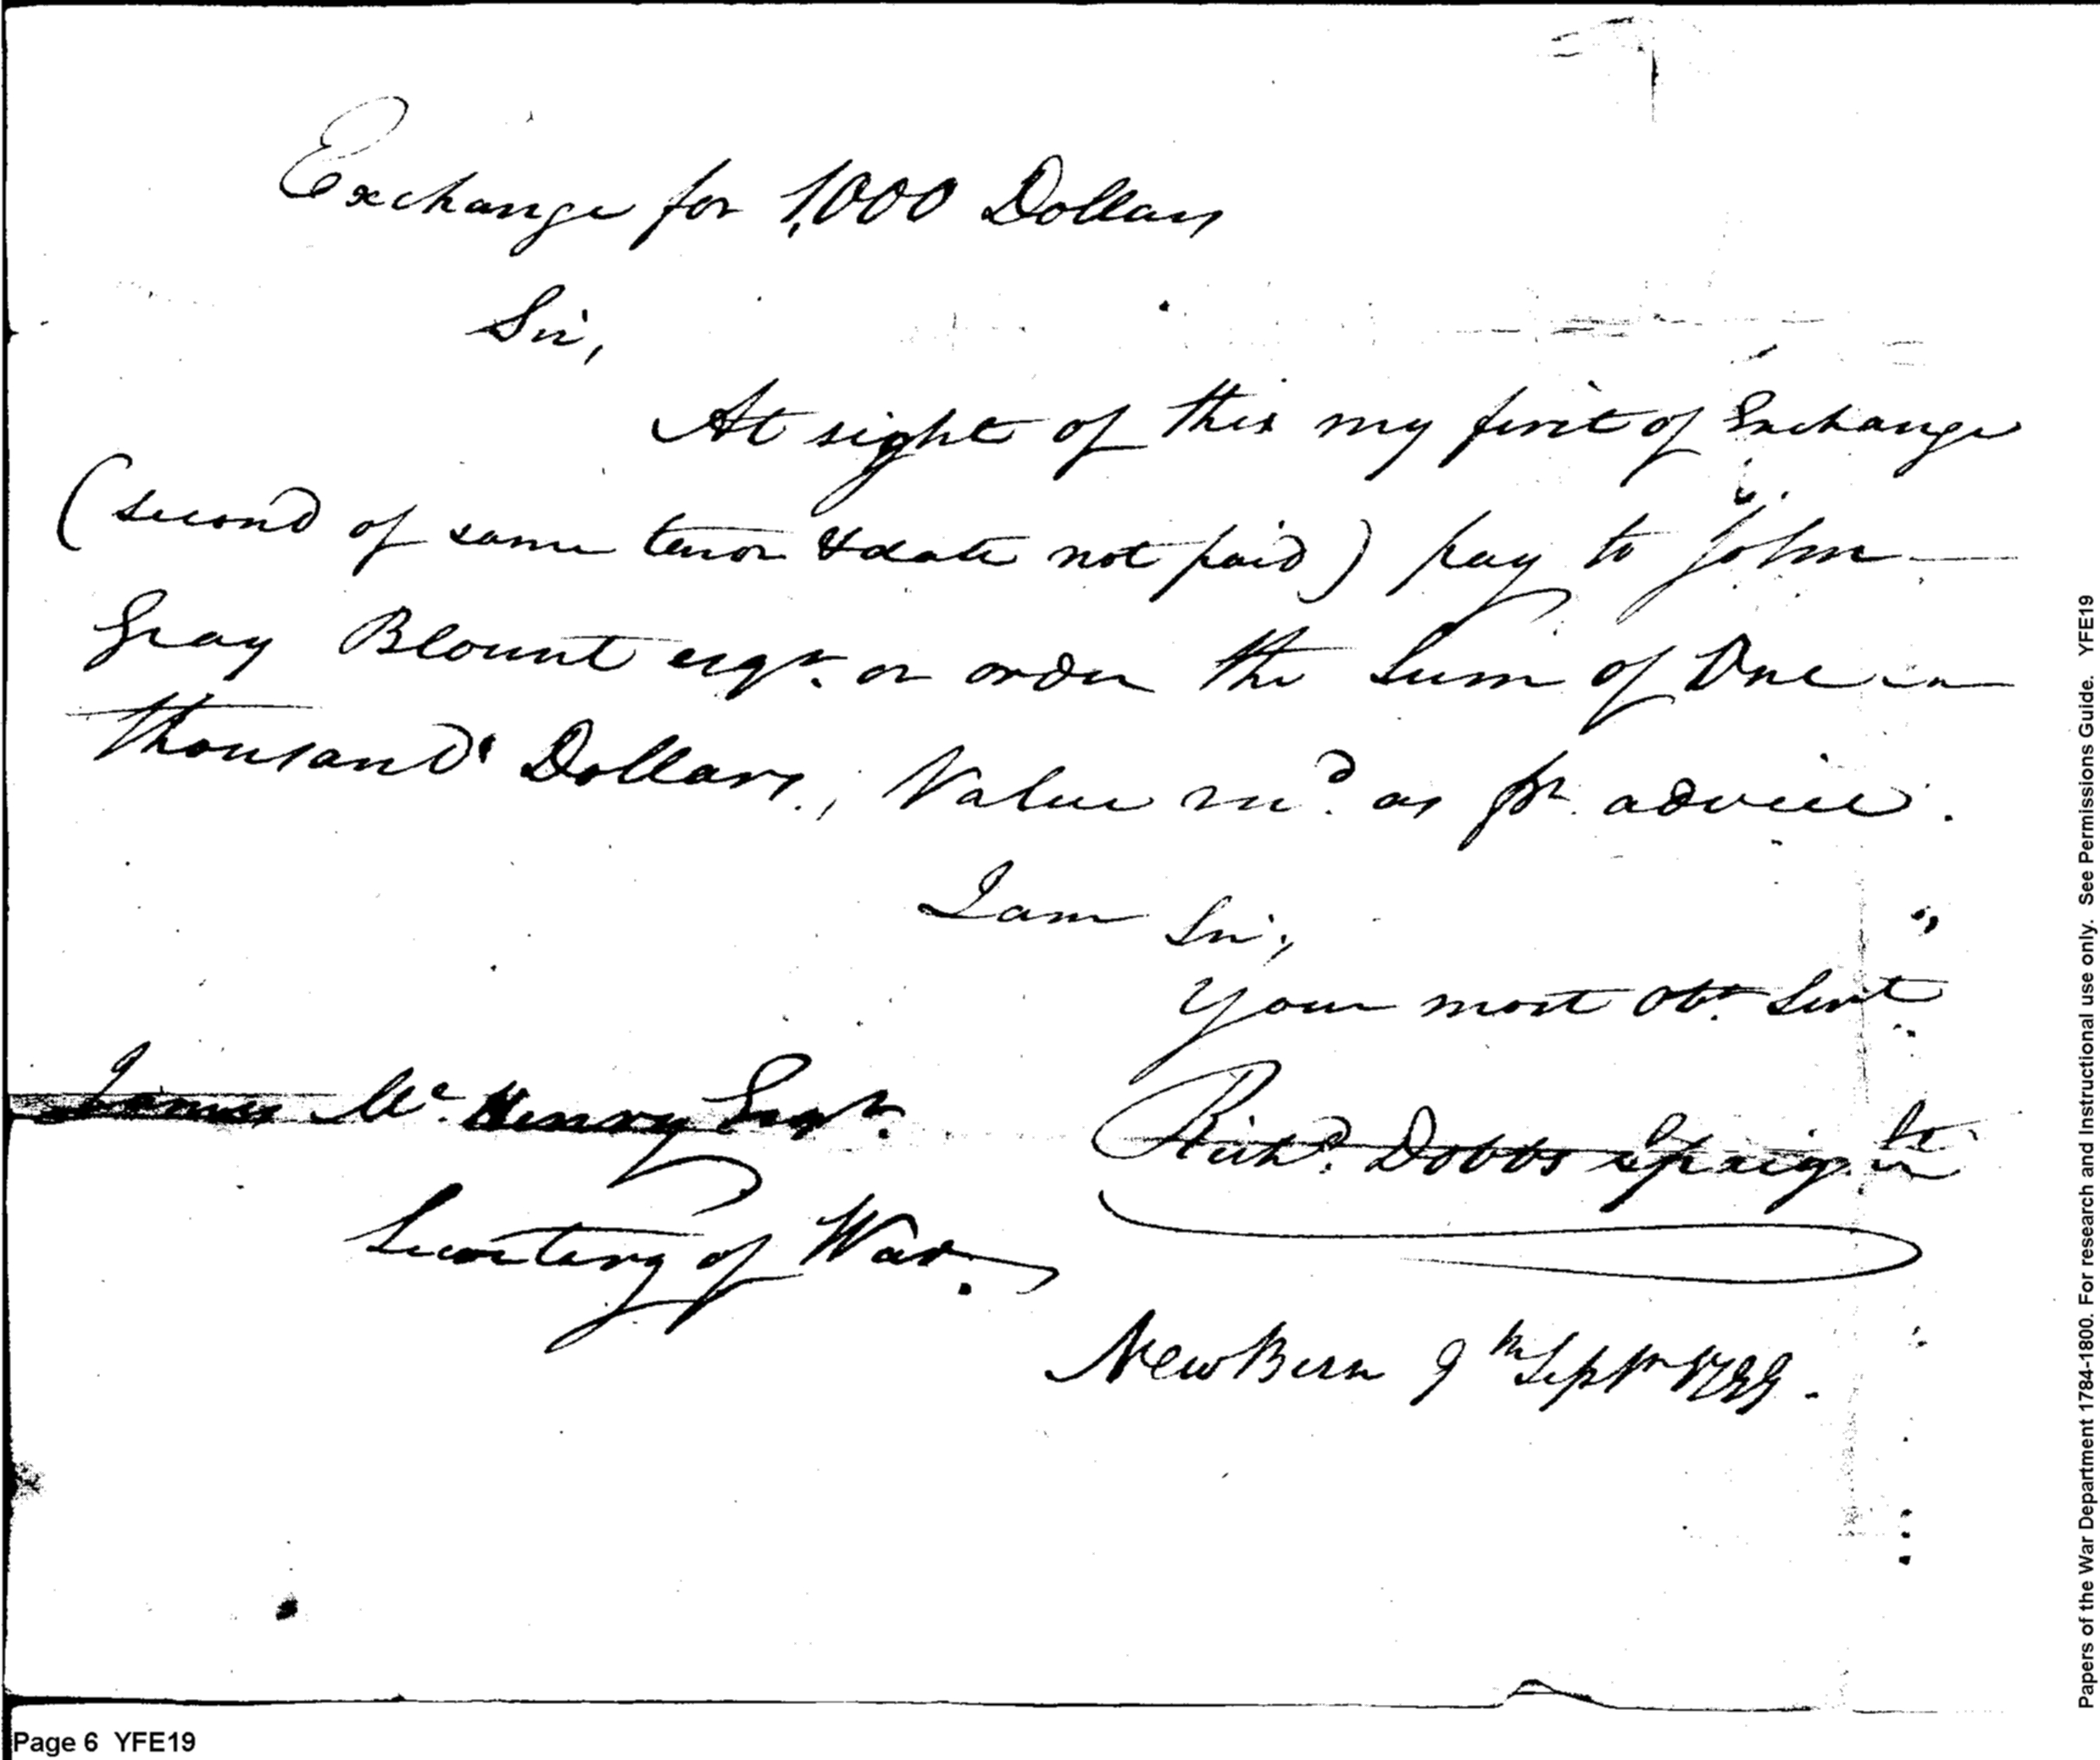 Exchange for 1,000 Dollars
Sir,
At sight of this my first of Exchange
(second of same tenor & date not paid) pay to John
Gray Blount esqr. or order the Sum of One
thousand Dollars, Value recd. as pr. advice.
I am Sir,
Your most obt. Servt.
James McHenry Esqr.
Richd. Dobbs Spaight
Secretary of War.
New Bern 9th Septr 1799.
Papers of the War Department 1784-1800. For research and Instructional use only. See Permissions Guide. YFE19
Page 6 YFE19